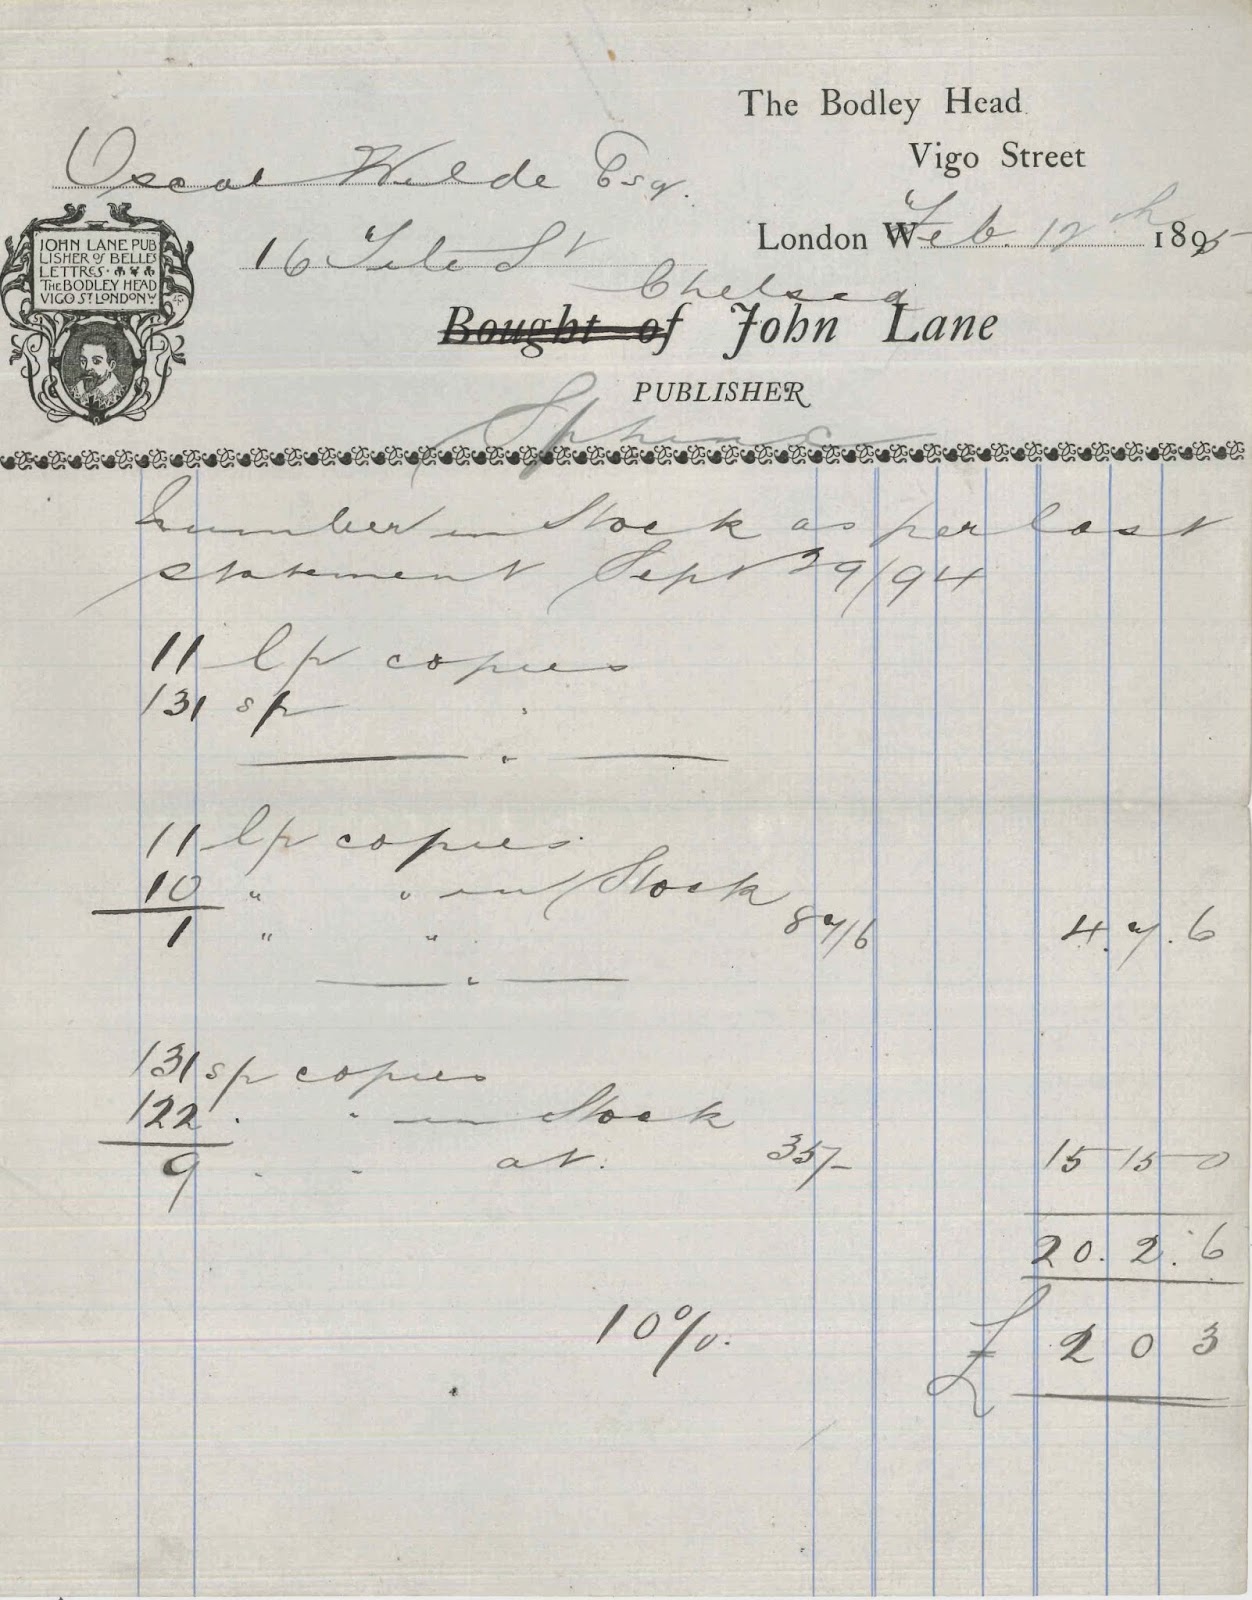 The Bodley Head
Vigo Street
Oscar Wilde Esq.
London W Feb. 12th 1895
16 Tite St
Chelsea
JOHN LANE PUB
LISHER of BELLES
LETTRES
The BODLEY HEAD
VIGO ST LONDON W
Bought of John Lane
PUBLISHER
Sphinx
Number in Stock as per last
statement Sept 29/94
11 lp copies
131 sp "
11 lp copies
10 " " in Stock
1 " " 87/6 4.7.6
131 sp copies
122 " " in Stock
9 " " at 35/- 15 15 0
20.2.6
10%. £ 2 0 3